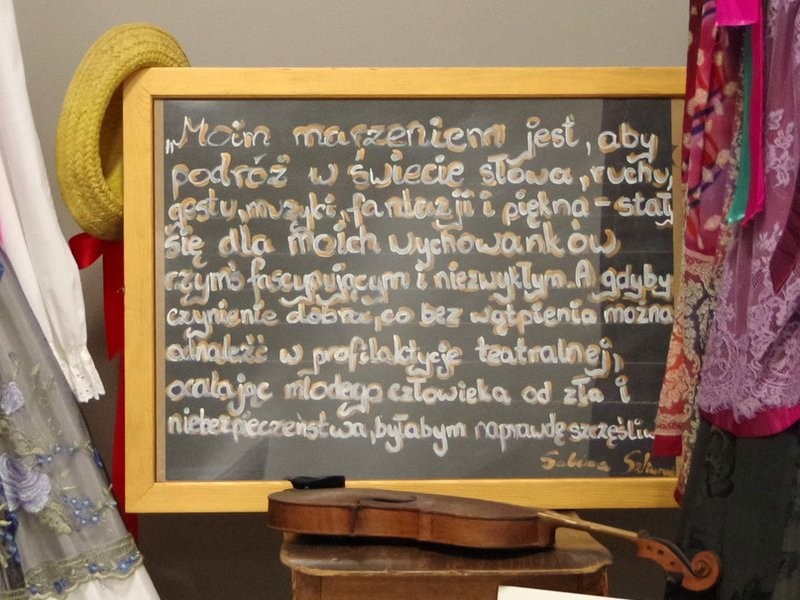 „Moim marzeniem jest, aby
podróż w świecie słowa, ruchu,
gestu, muzyki, fantazji i piękna - stały
się dla moich wychowanków
czymś fascynującym i niezwykłym. A gdyby
czynienie dobra, co bez wątpienia można
odnaleźć w profilaktyce teatralnej,
ocalając młodego człowieka od zła i
niebezpieczeństwa, byłabym naprawdę szczęśliw
Sabina